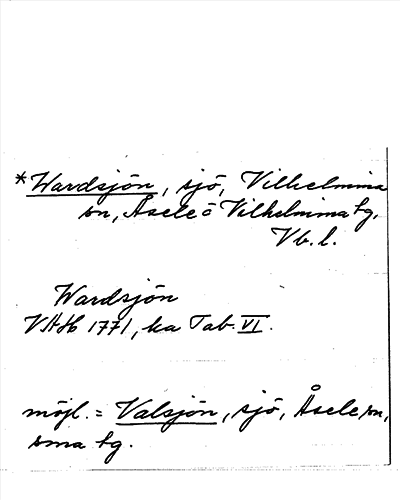 *Wardsjön, sjö, Vilhelmina
sn, Åsele o Vilhelmina tg,
Vb. l.
Wardsjön
VAH 1771, ka Tab. VI.
möjl. = Valsjön, sjö, Åsele sn,
sma tg.